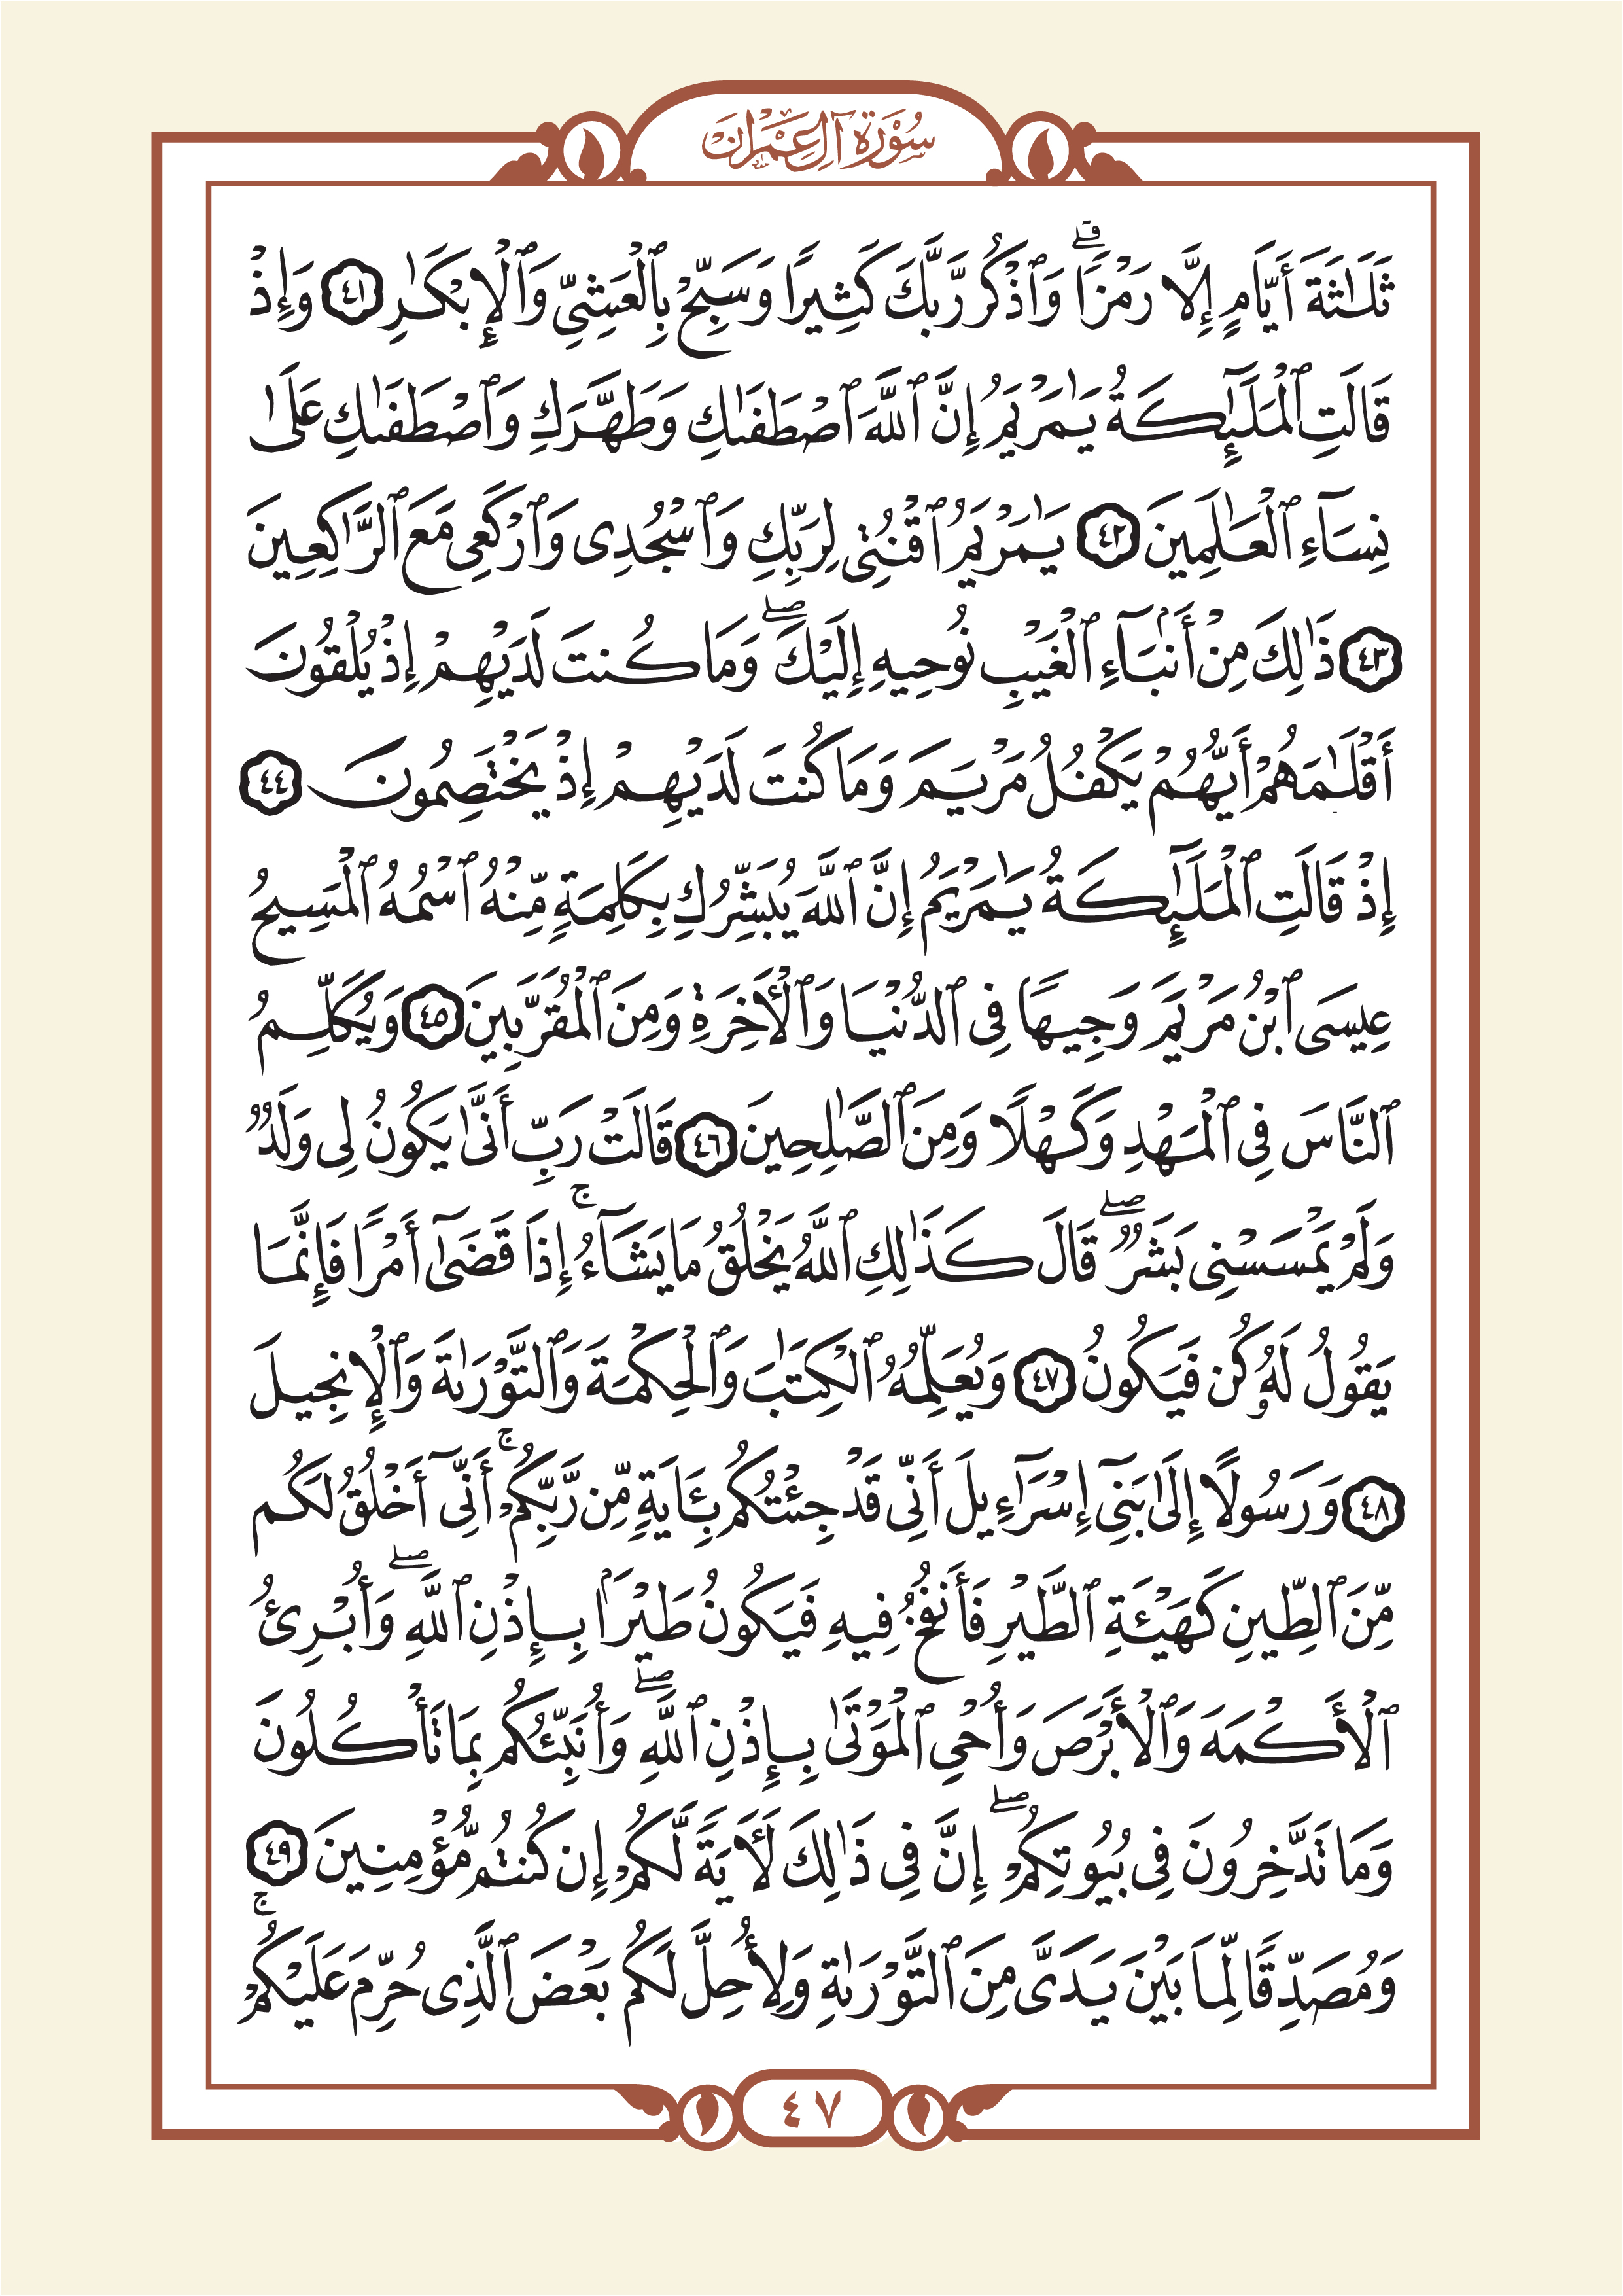 سُورَةُ آلِ عِمْرَانَ
ثَلَـٰثَةَ أَيَّامٍ إِلَّا رَمْزًاۗ وَٱذْكُر رَّبَّكَ كَثِيرًا وَسَبِّحْ بِٱلْعَشِىِّ وَٱلْإِبْكَـٰرِ ٤١ وَإِذْ
قَالَتِ ٱلْمَلَـٰٓئِكَةُ يَـٰمَرْيَمُ إِنَّ ٱللَّهَ ٱصْطَفَىٰكِ وَطَهَّرَكِ وَٱصْطَفَىٰكِ عَلَىٰ
نِسَآءِ ٱلْعَـٰلَمِينَ ٤٢ يَـٰمَرْيَمُ ٱقْنُتِى لِرَبِّكِ وَٱسْجُدِى وَٱرْكَعِى مَعَ ٱلرَّٰكِعِينَ
٤٣ ذَٰلِكَ مِنْ أَنۢبَآءِ ٱلْغَيْبِ نُوحِيهِ إِلَيْكَۖ وَمَا كُنتَ لَدَيْهِمْ إِذْ يُلْقُونَ
أَقْلَـٰمَهُمْ أَيُّهُمْ يَكْفُلُ مَرْيَمَ وَمَا كُنتَ لَدَيْهِمْ إِذْ يَخْتَصِمُونَ ٤٤
إِذْ قَالَتِ ٱلْمَلَـٰٓئِكَةُ يَـٰمَرْيَمُ إِنَّ ٱللَّهَ يُبَشِّرُكِ بِكَلِمَةٍ مِّنْهُ ٱسْمُهُ ٱلْمَسِيحُ
عِيسَى ٱبْنُ مَرْيَمَ وَجِيهًا فِى ٱلدُّنْيَا وَٱلْأَخِرَةِ وَمِنَ ٱلْمُقَرَّبِينَ ٤٥ وَيُكَلِّمُ
ٱلنَّاسَ فِى ٱلْمَهْدِ وَكَهْلًا وَمِنَ ٱلصَّـٰلِحِينَ ٤٦ قَالَتْ رَبِّ أَنَّىٰ يَكُونُ لِى وَلَدٌ
وَلَمْ يَمْسَسْنِى بَشَرٌۖ قَالَ كَذَٰلِكِ ٱللَّهُ يَخْلُقُ مَا يَشَآءُۚ إِذَا قَضَىٰٓ أَمْرًا فَإِنَّمَا
يَقُولُ لَهُۥ كُن فَيَكُونُ ٤٧ وَيُعَلِّمُهُ ٱلْكِتَـٰبَ وَٱلْحِكْمَةَ وَٱلتَّوْرَىٰةَ وَٱلْإِنجِيلَ
٤٨ وَرَسُولًا إِلَىٰ بَنِىٓ إِسْرَٰٓءِيلَ أَنِّى قَدْ جِئْتُكُم بِـَٔايَةٍ مِّن رَّبِّكُمْۚ أَنِّىٓ أَخْلُقُ لَكُم
مِّنَ ٱلطِّينِ كَهَيْـَٔةِ ٱلطَّيْرِ فَأَنفُخُ فِيهِ فَيَكُونُ طَيْرًۢا بِإِذْنِ ٱللَّهِۖ وَأُبْرِئُ
ٱلْأَكْمَهَ وَٱلْأَبْرَصَ وَأُحْىِ ٱلْمَوْتَىٰ بِإِذْنِ ٱللَّهِۖ وَأُنَبِّئُكُم بِمَا تَأْكُلُونَ
وَمَا تَدَّخِرُونَ فِى بُيُوتِكُمْۖ إِنَّ فِى ذَٰلِكَ لَأَيَةً لَّكُمْ إِن كُنتُم مُّؤْمِنِينَ ٤٩
وَمُصَدِّقًا لِّمَا بَيْنَ يَدَىَّ مِنَ ٱلتَّوْرَىٰةِ وَلِأُحِلَّ لَكُم بَعْضَ ٱلَّذِى حُرِّمَ عَلَيْكُمْۚ
٤٧